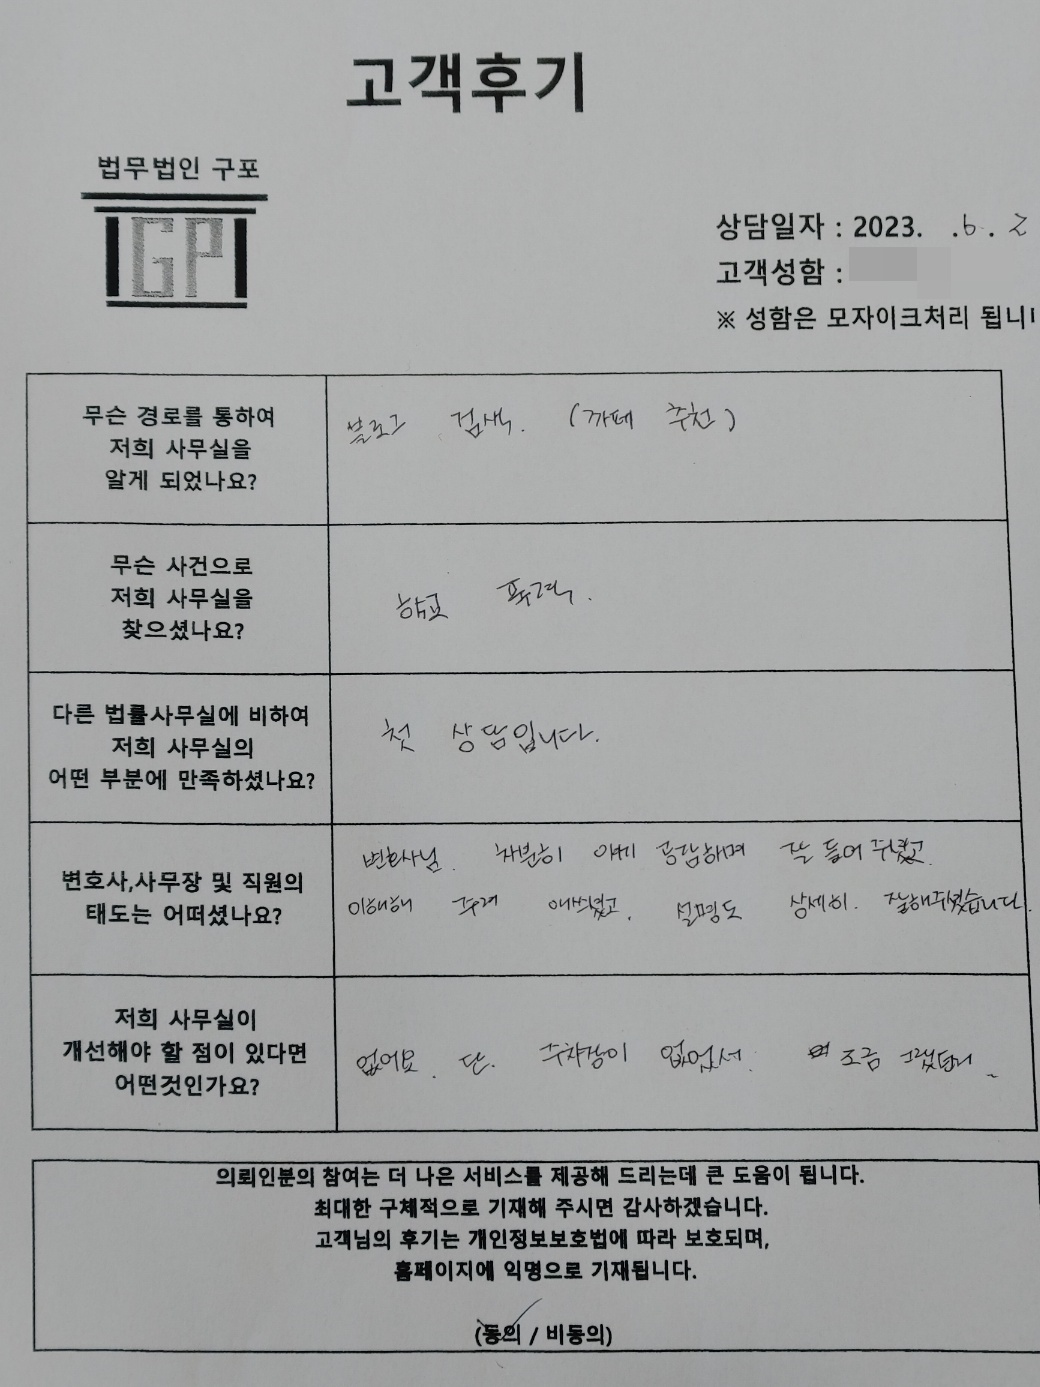 고객후기
법무법인 구포
GP
상담일자 : 2023. .6. 2
고객성함 :
※ 성함은 모자이크처리 됩니다
무슨 경로를 통하여
저희 사무실을
알게 되었나요?
블로그 검색. (까페 추천)
무슨 사건으로
저희 사무실을
찾으셨나요?
학교 폭력.
다른 법률사무실에 비하여
저희 사무실의
어떤 부분에 만족하셨나요?
첫 상담입니다.
변호사,사무장 및 직원의
태도는 어떠셨나요?
변호사님. 차분히 공감하며 잘 들어 주셨고.
이해해 주려 애쓰셨고, 설명도 상세히. 잘해주셨습니다.
저희 사무실이
개선해야 할 점이 있다면
어떤것인가요?
없어요. 단. 주차장이 없었서. 조금
의뢰인분의 참여는 더 나은 서비스를 제공해 드리는데 큰 도움이 됩니다.
최대한 구체적으로 기재해 주시면 감사하겠습니다.
고객님의 후기는 개인정보보호법에 따라 보호되며,
홈페이지에 익명으로 기재됩니다.
(동의 / 비동의)